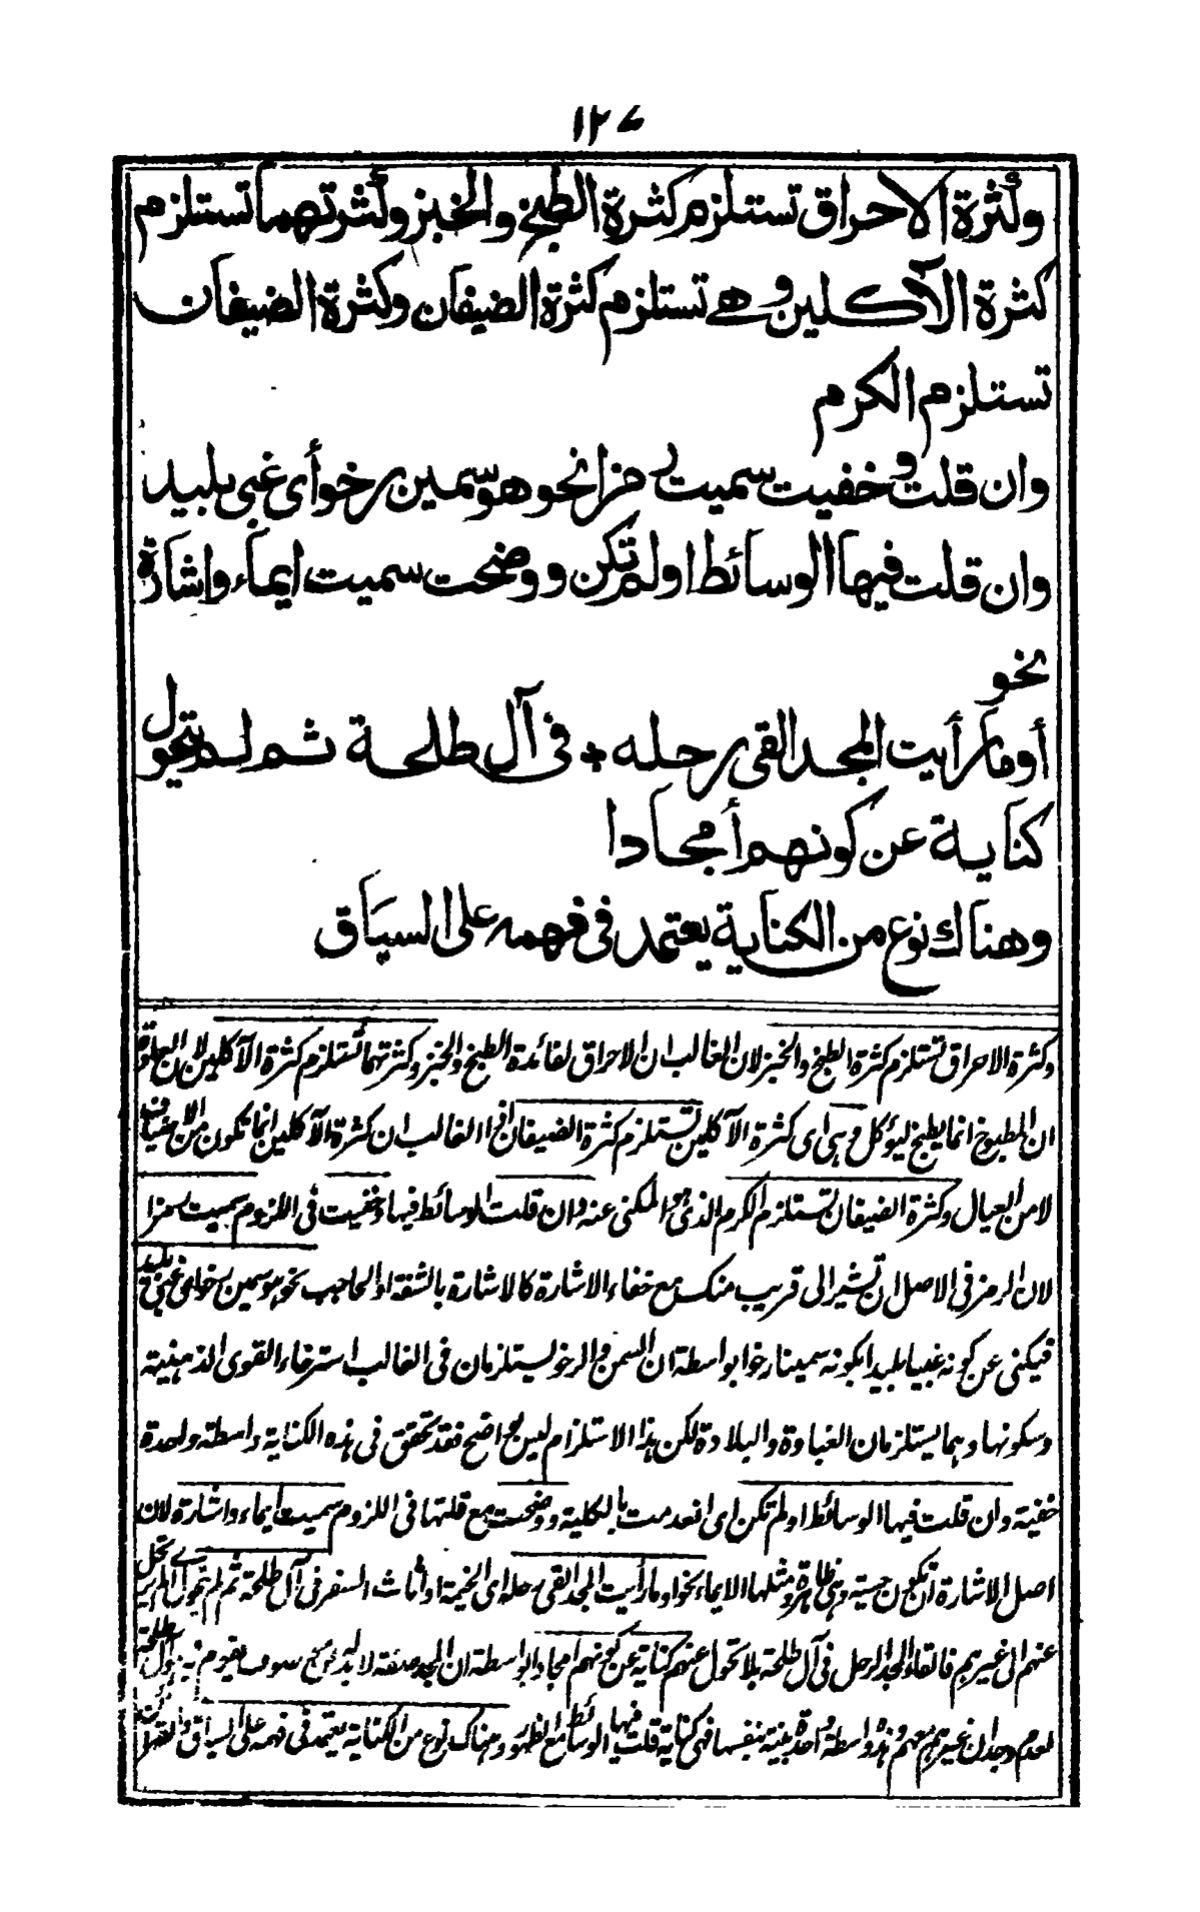 ١٢٧
وكثرة الاحراق تستلزم كثرة الطبخ والخبز وكثرتهما تستلزم
كثرة الآكلين وهي تستلزم كثرة الضيفان وكثرة الضيفان
تستلزم الكرم
وان قلت وخفيت سميت رمزا نحو هو سمين رخو أى غبى بليد
وان قلت فيها الوسائط اولم تكن ووضحت سميت ايماء واشارة
نحو
أو ما رأيت المجد القى رحله * فى آل طلحة ثم لم يتحول
كناية عن كونهم أمجادا
وهناك نوع من الكناية يعتمد فى فهمه على السياق
وكثرة الاحراق تستلزم كثرة الطبخ والخبز لان الغالب ان الاحراق لفائدة الطبخ والخبز وكثرتهما تستلزم كثرة الآكلين لان العلة
ان المطبوخ انما يطبخ ليؤكل وهى اى كثرة الآكلين تستلزم كثرة الضيفان اذ الغالب ان كثرة الآكلين انما تكون من الاضياف
لا من العيال وكثرة الضيفان تستلزم الكرم الذى هو المكنى عنه وان قلت الوسائط فيها وخفيت فى اللزوم سميت رمزا
لان الرمز فى الاصل ان تشير الى قريب منك مع خفاء الاشارة كالاشارة بالشفة او الحاجب نحو هو سمين رخو اى غبى بليد
فيكنى عن كونه غبيا بليدا بكونه سمينا رخوا بواسطة ان السمن والرخو يستلزمان فى الغالب استرخاء القوى الذهنية
وسكونها وهما يستلزمان الغباوة والبلادة لكن هذا الاستلزام ليس بواضح فقد تحقق فى هذه الكناية واسطة واحدة
خفية وان قلت فيها الوسائط اولم تكن اى انعدمت بالكلية ووضحت مع قلتها فى اللزوم سميت ايماء واشارة لان
اصل الاشارة ان تكون حسية وهى ظاهرة ومثلها الايماء نحو او ما رأيت المجد القى رحله اى الخيمة او أثاث السفر فى آل طلحة ثم لم يتحول
عنهم الى غيرهم فالقاء المجد الرحل فى آل طلحة بلا تحول عنهم كناية عن كونهم امجادا بواسطة ان المجد صفة لابد له من موصوف يقوم به
لعدم وجدان غيرهم معهم وهذه واسطة واحدة بينة بنفسها فهى كناية قلت فيها الوسائط مع الظهور وهناك نوع من الكناية يعتمد فى فهمه على السياق